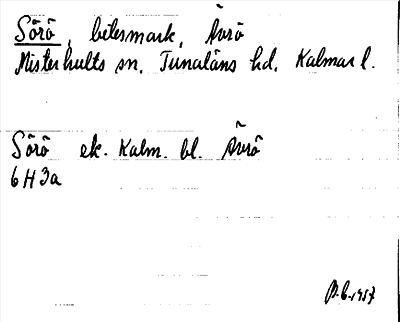 Sörö, betesmark, Ävrö
Misterhults sn, Tunaläns hd, Kalmar l.
Sörö ek. Kalm. bl. Ävrö
6H3a